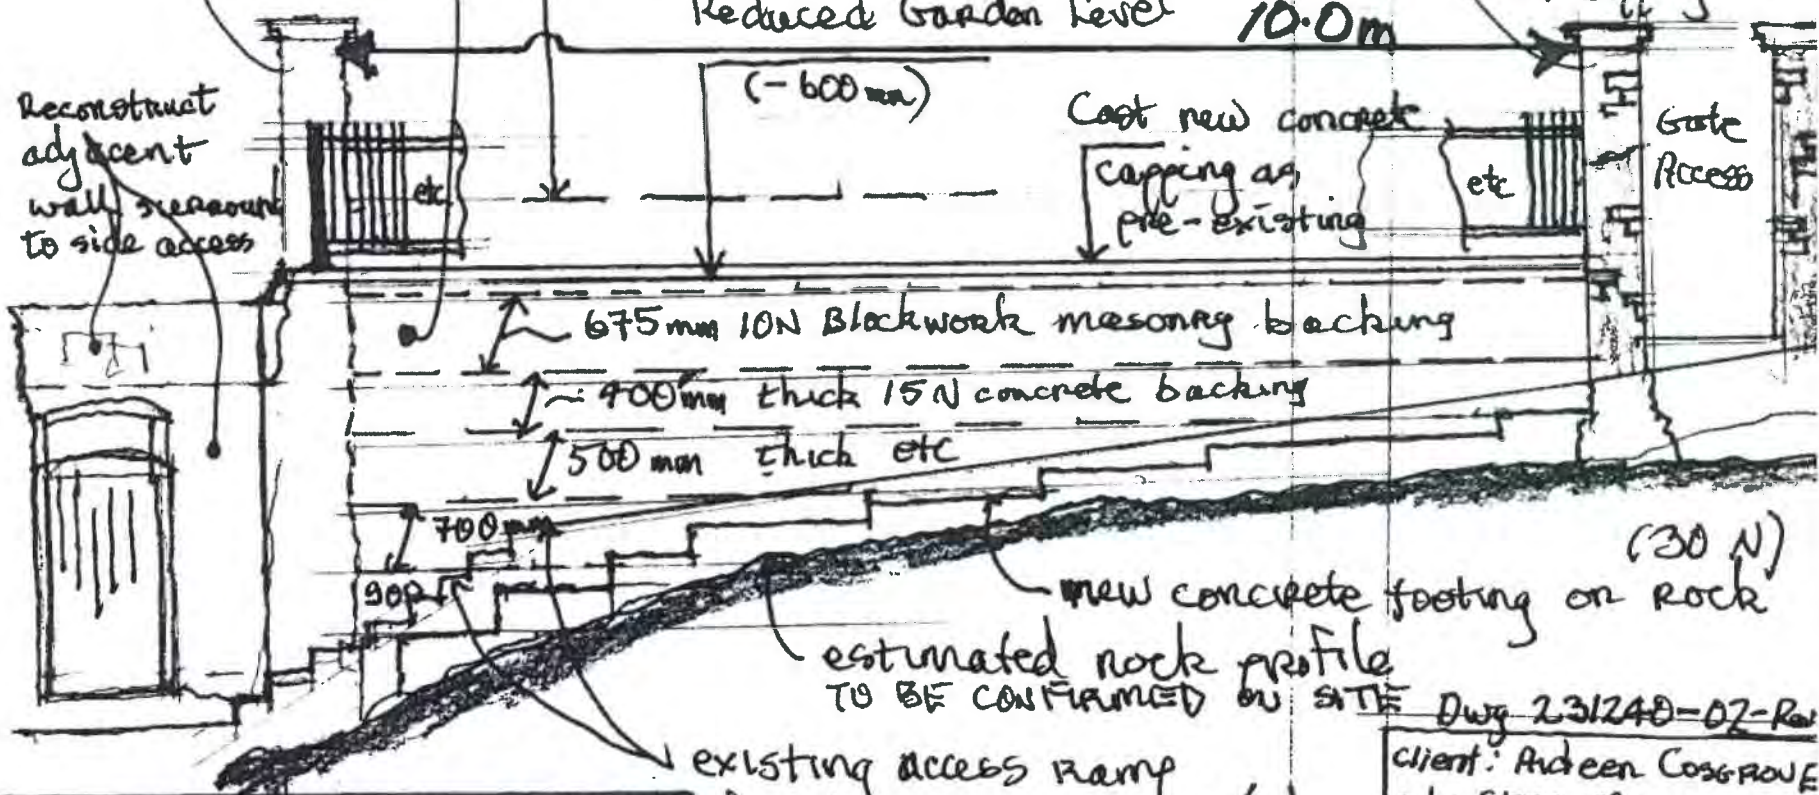 Reduced Garden Level
10.0m
(-600mm)
Reconstruct
adjacent
wall surround
to side access
etc
Cast new concrete
capping as
pre-existing
etc
Gate
Access
675mm 10N Blockwork masonry backing
~400mm thick 15N concrete backing
500mm thick etc
700mm
900
(30 N)
new concrete footing on Rock
estimated rock profile
TO BE CONFIRMED ON SITE
existing access Ramp
Dwg 231240-02-Rev
client: Ardeen COSGROVE